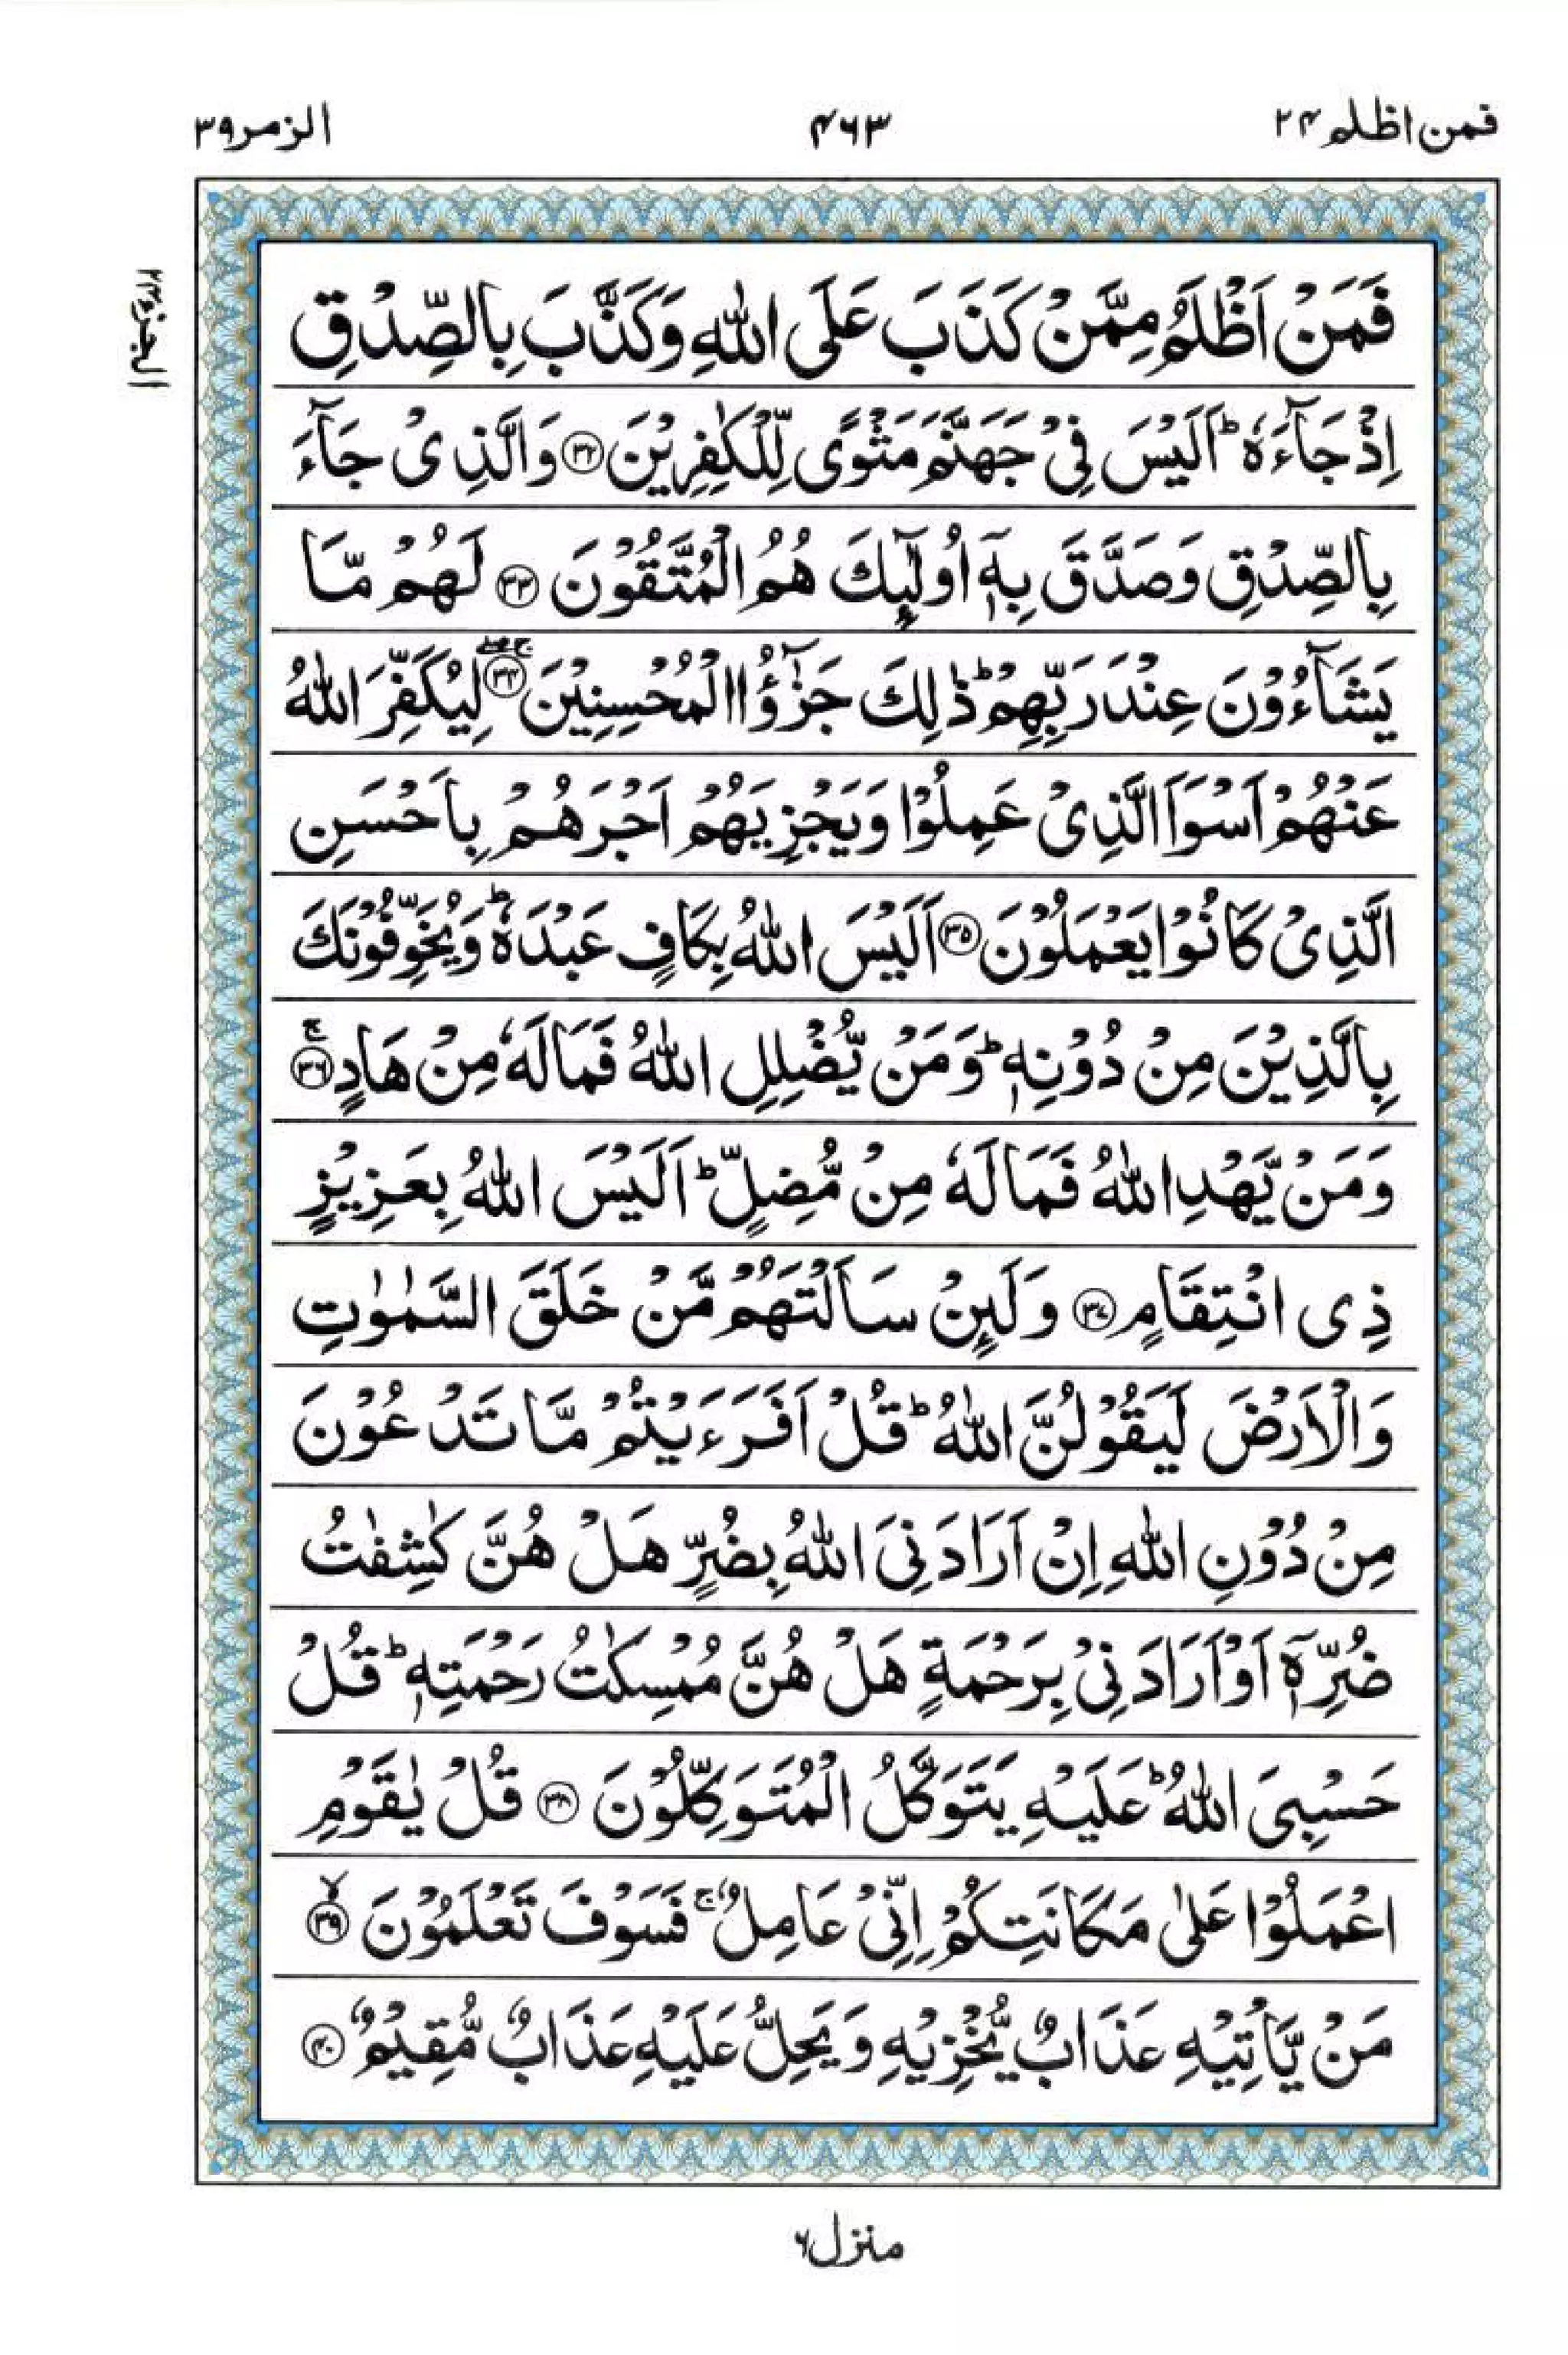 فمن اظلم ۲۴
۴۶۳
الزمر ۳۹
الجزء ۲۴
فَمَنْ اَظْلَمُ مِمَّنْ كَذَبَ عَلَى اللّٰهِ وَكَذَّبَ بِالصِّدْقِ
اِذْ جَآءَهٗ ؕ اَلَيْسَ فِيْ جَهَنَّمَ مَثْوًى لِّلْكٰفِرِيْنَ ۝۳۲ وَالَّذِيْ جَآءَ
بِالصِّدْقِ وَصَدَّقَ بِهٖٓ اُولٰٓئِكَ هُمُ الْمُتَّقُوْنَ ۝۳۳ لَهُمْ مَّا
يَشَآءُوْنَ عِنْدَ رَبِّهِمْ ؕ ذٰلِكَ جَزٰٓؤُا الْمُحْسِنِيْنَ ۝۳۴ لِيُكَفِّرَ اللّٰهُ
عَنْهُمْ اَسْوَاَ الَّذِيْ عَمِلُوْا وَيَجْزِيَهُمْ اَجْرَهُمْ بِاَحْسَنِ
الَّذِيْ كَانُوْا يَعْمَلُوْنَ ۝۳۵ اَلَيْسَ اللّٰهُ بِكَافٍ عَبْدَهٗ ؕ وَيُخَوِّفُوْنَكَ
بِالَّذِيْنَ مِنْ دُوْنِهٖ ؕ وَمَنْ يُّضْلِلِ اللّٰهُ فَمَا لَهٗ مِنْ هَادٍ ۚ ۝۳۶
وَمَنْ يَّهْدِ اللّٰهُ فَمَا لَهٗ مِنْ مُّضِلٍّ ؕ اَلَيْسَ اللّٰهُ بِعَزِيْزٍ
ذِي انْتِقَامٍ ۝۳۷ وَلَئِنْ سَاَلْتَهُمْ مَّنْ خَلَقَ السَّمٰوٰتِ
وَالْاَرْضَ لَيَقُوْلُنَّ اللّٰهُ ؕ قُلْ اَفَرَءَيْتُمْ مَّا تَدْعُوْنَ
مِنْ دُوْنِ اللّٰهِ اِنْ اَرَادَنِيَ اللّٰهُ بِضُرٍّ هَلْ هُنَّ كٰشِفٰتُ
ضُرِّهٖٓ اَوْ اَرَادَنِيْ بِرَحْمَةٍ هَلْ هُنَّ مُمْسِكٰتُ رَحْمَتِهٖ ؕ قُلْ
حَسْبِيَ اللّٰهُ ؕ عَلَيْهِ يَتَوَكَّلُ الْمُتَوَكِّلُوْنَ ۝۳۸ قُلْ يٰقَوْمِ
اعْمَلُوْا عَلٰى مَكَانَتِكُمْ اِنِّيْ عَامِلٌ ۚ فَسَوْفَ تَعْلَمُوْنَ ۙ ۝۳۹
مَنْ يَّاْتِيْهِ عَذَابٌ يُّخْزِيْهِ وَيَحِلُّ عَلَيْهِ عَذَابٌ مُّقِيْمٌ ۝۴۰
منزل ۶